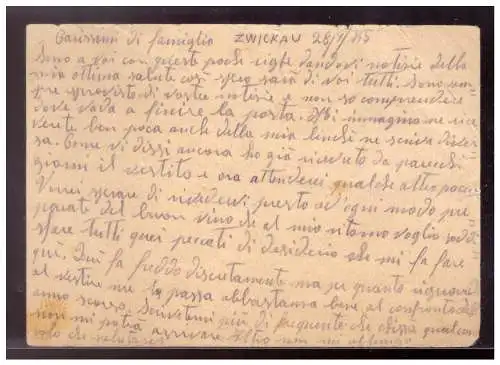 Carissimi di famiglia ZWICKAU 28/1/45
sono a voi con queste poche righe dandovi notizie della
mia ottima salute così spero sarà di voi tutti. Sono sem-
pre sprovvisto di vostre notizie e non so comprendere
dove vada a finire la posta. Mi immagino ne rice
verete ben poca anche della mia benché ne scriva diver
sa. Come vi dissi ancora ho già ricevuto da parecchi
giorni il vestito e ora attenderei qualche altro pacco
Vorrei sperare di rivedervi presto ad ogni modo pre
parate del buon vino che al mio ritorno voglio soddi
sfare tutti quei peccati di desiderio che mi fa fare
qui. Qui fa freddo discretamente ma per quanto riguarda
al vestire me la passo abbastanza bene al confronto dell
anno scorso. Scrivetemi più di frequente che chissà qualcun
non mi potrà arrivare. Altro non mi